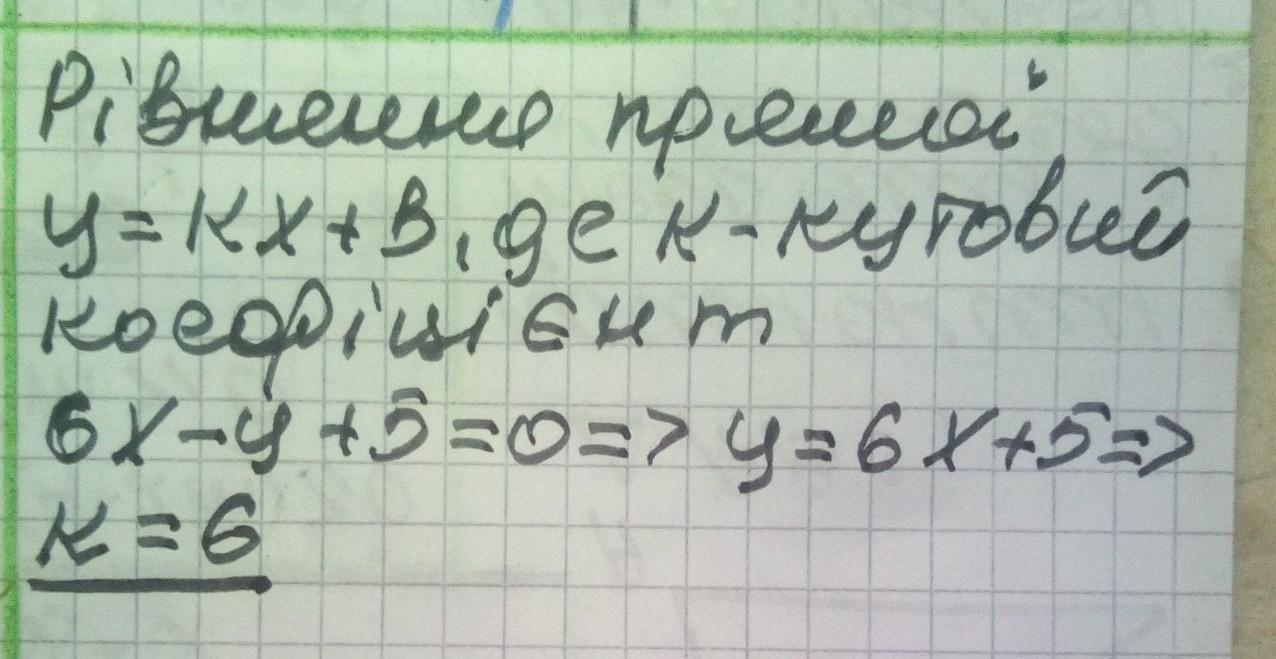 Рівняння прямої
y=кx+в, де к-кутовий
коефіцієнт
6x-y+5=0=> y=6x+5=>
к=6